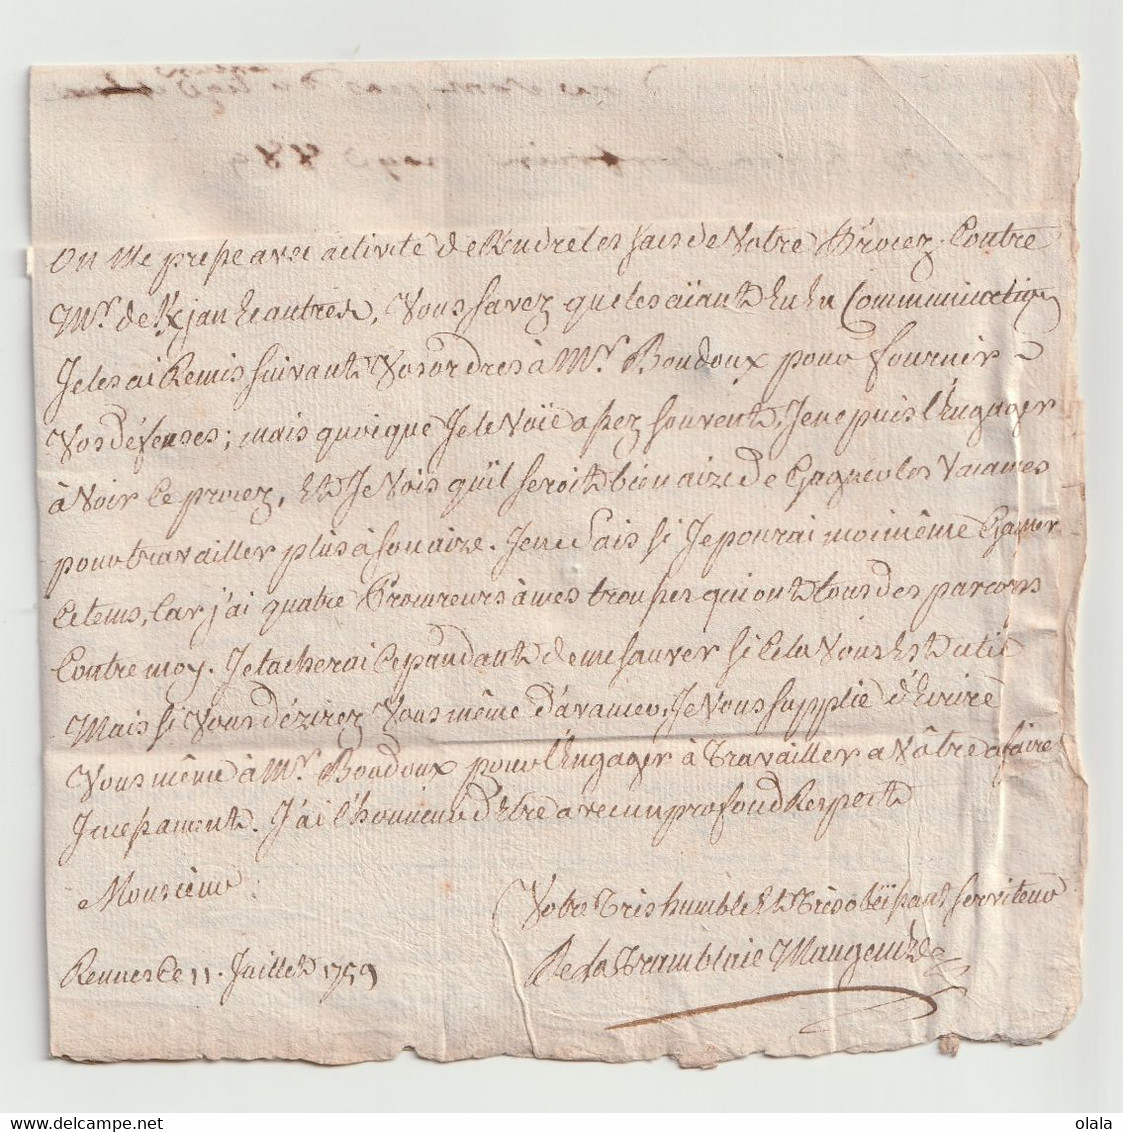 On me presse avec activité de Rendre les sacs de Votre Procez Contre
Mr. de Kjan et autres, Vous savez que les aïant Eu En Communication
Je les ai Remis suivant Vos ordres à Mr. Boudoux pour fournir
Vos défenses; mais quoique Je le Voïe assez souvent, Je ne puis l'Engager
à Voir Ce procez, Et Je Vois qu'il seroit bien aize de Gagner les Vacances
pour travailler plus à son aize. Je ne sais si Je pourai moi même Gagner
Ce tems, Car j'ai quatre Procureurs à mes trousses qui ont tous des parcorps
Contre moy. Je tacherai Cependant de me sauver si Cela Vous Est utile
Mais si Vous dézirez Vous même d'avancer, Je Vous supplie d'Ecrire
Vous même à Mr. Boudoux pour l'Engager à Travailler a Vôtre afaire
Incessament. J'ai l'honneur d'Etre avec un profond Respect
Monsieur
Votre Très humble Et Très obéïssant serviteur
De la Tramblaie Maugendre
Rennes Ce 11. Juillet 1759
olala